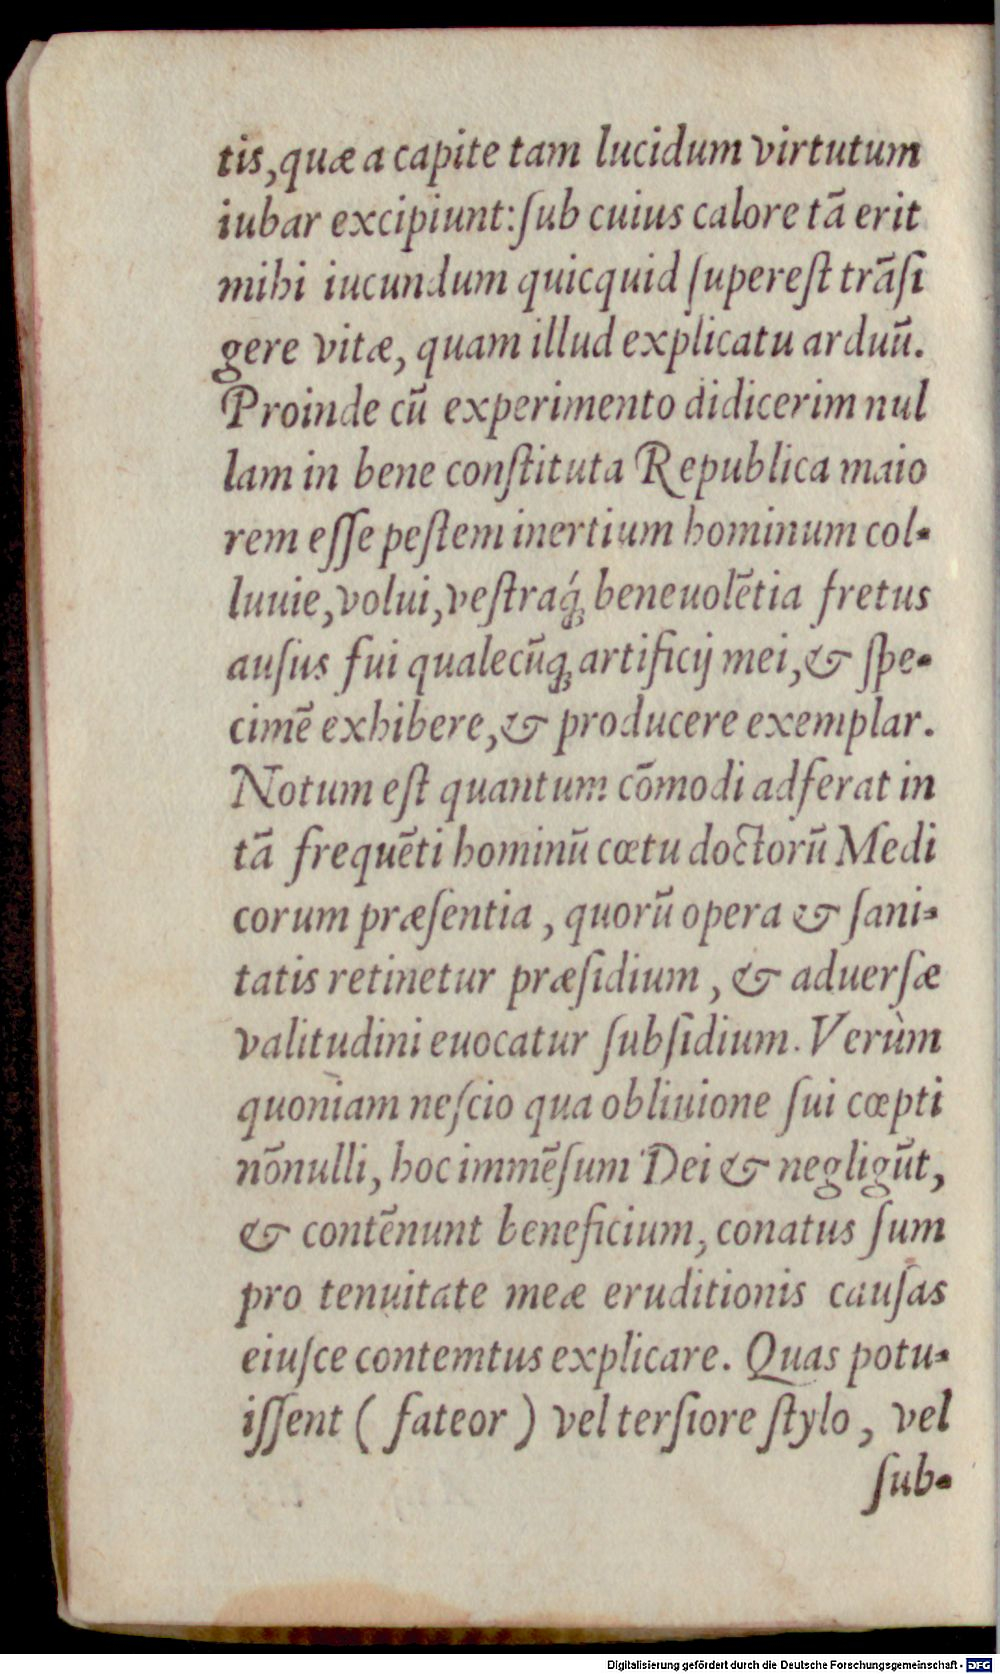 tis, quæ a capite tam lucidum virtutum
iubar excipiunt: ſub cuius calore tā erit
mihi iucundum quicquid ſupereſt trāſi
gere vitæ, quam illud explicatu arduū.
Proinde cū experimento didicerim nul
lam in bene conſtituta Republica maio
rem eſſe peſtem inertium hominum col-
luuie, volui, veſtraq́; beneuolētia fretus
auſus fui qualecūq; artificij mei, & ſpe-
cimē exhibere, & producere exemplar.
Notum eſt quantum cōmodi adferat in
tā frequēti hominū cœtu doctorū Medi
corum præſentia, quorū opera & ſani-
tatis retinetur præſidium, & aduerſæ
valitudini euocatur ſubſidium. Verùm
quoniam neſcio qua obliuione ſui cœpti
nōnulli, hoc immēſum Dei & negligūt,
& contēnunt beneficium, conatus ſum
pro tenuitate meæ eruditionis cauſas
eiuſce contemtus explicare. Quas potu-
iſſent ( fateor ) vel terſiore ſtylo, vel
ſub-
Digitalisierung gefördert durch die Deutsche Forschungsgemeinschaft - DFG